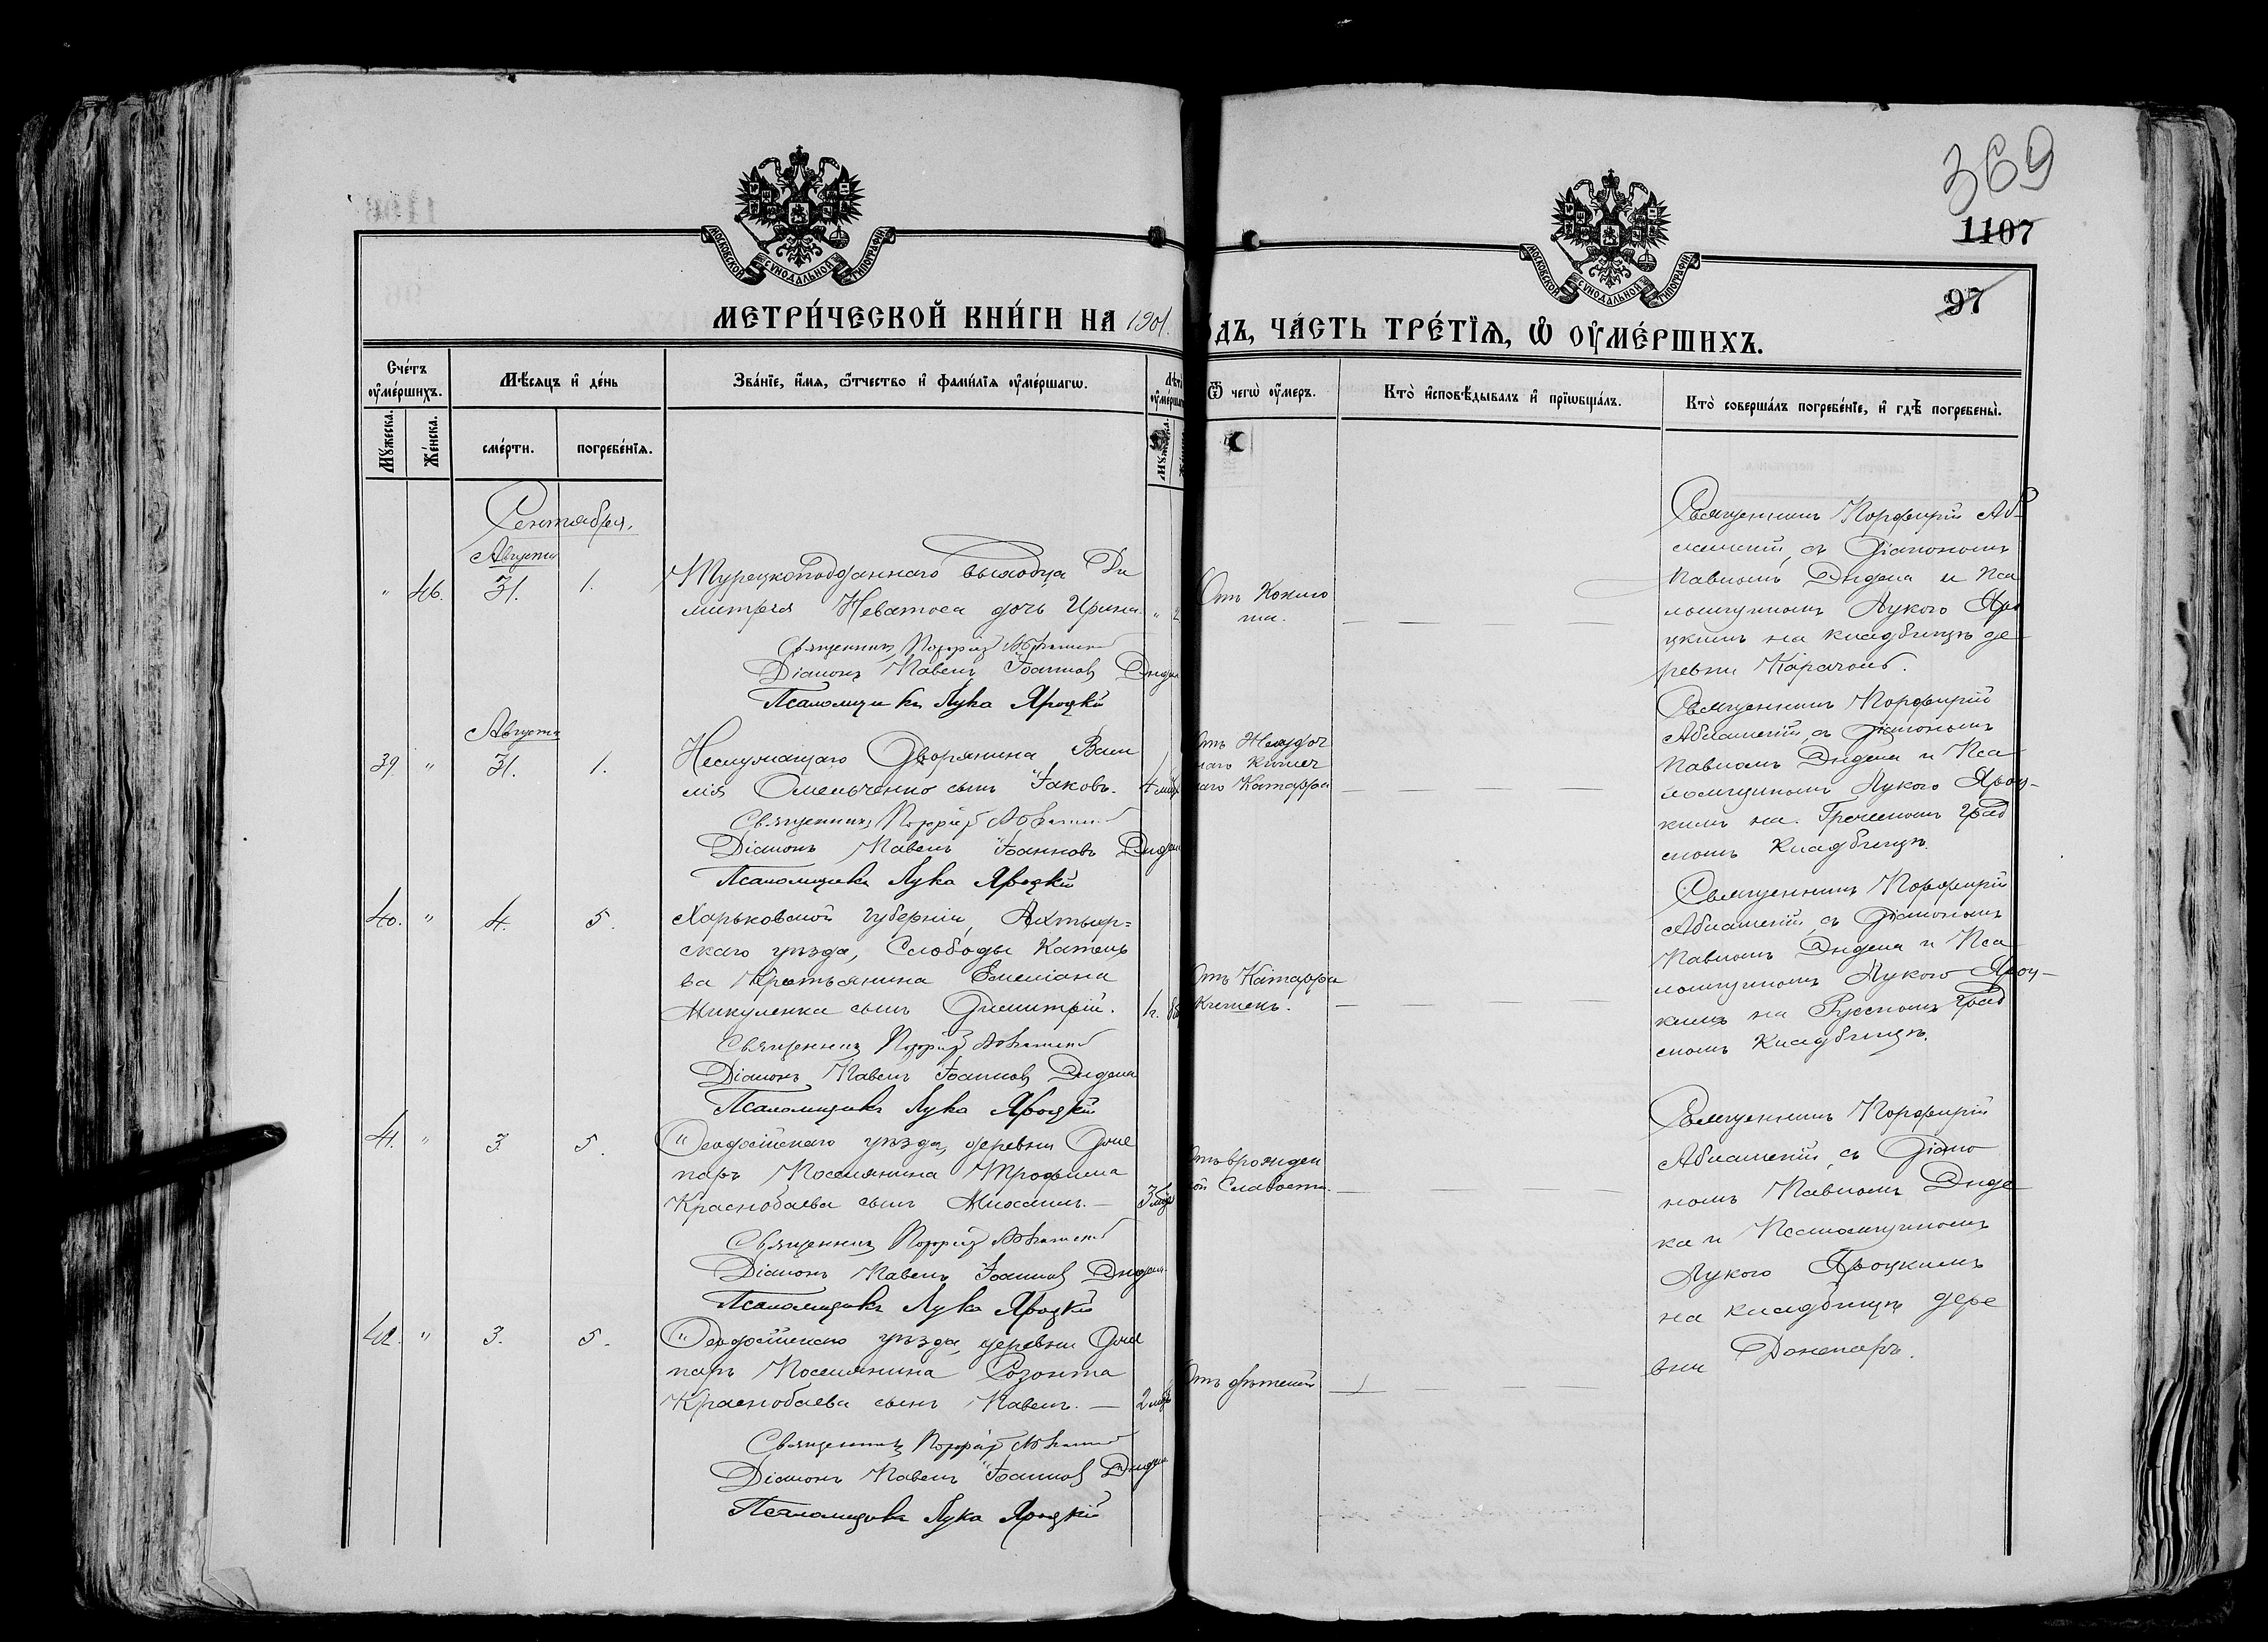 369
1107
97
МОСКОВСКОЙ СѴНОДАЛЬНОЙ ТИПОГРАФІИ
МОСКОВСКОЙ СѴНОДАЛЬНОЙ ТИПОГРАФІИ
МЕТРИ́ЧЕСКОЙ КНИ́ГИ НА 1901.
ОДЪ, ЧА́СТЬ ТРЕ́ТЇѦ, Ѡ ОУМЕ́РШИХЪ.
Сче́тъ оуме́ршихъ.
Мꙋжеска.
Же́нска.
Мѣ́сяцъ и де́нь
сме́рти.
погребе́нїѧ.
Зва́нїе, и́мѧ, ѻтчество и фами́лїѧ оуме́ршагѡ.
Лѣта оуме́рша
Мꙋжеска.
Ѿ чегѡ̀ оу́меръ.
Кто̀ исповѣ́дывалъ и прїѡбща́лъ.
Кто̀ соверша́лъ погребе́нїе, и гдѣ̀ погребены̀.
Сентября.
Августа
" 46. 31. 1.
Турецкоподданнаго выходца Ди
митрія Неватоса дочь Ирина. " 2
Священникъ Порфирій
Діаконъ Павелъ Іоанновъ Дидей
Псаломщикъ Лука Яроцкій
Отъ Коклю
ша.
Священникъ Порфирій Аб
съ Діакономъ
Павломъ Дидена и Пса
ломщикомъ Лукою Яро
цкимъ на кладбищѣ де
ревни Карагозъ.
Августа
39. " 31. 1.
Неслужащаго Дворянина Васи
лія Омельченко сынъ Іаковъ. 4 мѣс
Священникъ Порфирій
Діаконъ Павелъ Іоанновъ Диден
Псаломщикъ Лука Яроцкій
отъ Желудоч
наго Кишеч
наго Катарра
Священникъ Порфирій
съ Діакономъ
Павломъ Дидена и Пса
ломщикомъ Лукою Яроц-
кимъ на Греческомъ град
скомъ Кладбищѣ.
40. " 4. 5.
Харьковской губерніи, Ахтыр=
скаго уѣзда, Слободы
ва Крестьянина Емеліана
Микуленка сынъ Димитрій. 1 г.
Священникъ Порфирій
Діаконъ Павелъ Іоанновъ Дидена
Псаломщикъ Лука Яроцкій
Отъ Катарра
Кишекъ.
Священникъ Порфирій
съ Діакономъ
Павломъ Дидена и Пса
ломщикомъ Лукою Яроц-
кимъ на Русскомъ Град
скомъ Кладбищѣ.
41. " 3. 5.
Ѳеодосійскаго уѣзда, деревни Доне
паръ Поселянина Трофима
Краснобаева сынъ — 3 мѣс
Священникъ Порфирій
Діаконъ Павелъ Іоанновъ Дидена
Псаломщикъ Лука Яроцкій
Отъ врожден
ной Слабости.
Священникъ Порфирій
съ Діако
номъ Павломъ Диде
на и Псаломщикомъ
Лукою Яроцкимъ
на кладбищѣ дере
вни Донепаръ.
42. " 3. 5.
Ѳеодосійскаго уѣзда, деревни Доне
паръ Поселянина Созонта
Краснобаева сынъ Павелъ. — 2 мѣс
Отъ
Священникъ Порфирій
Діаконъ Павелъ Іоанновъ Дидена
Псаломщикъ Лука Яроцкій